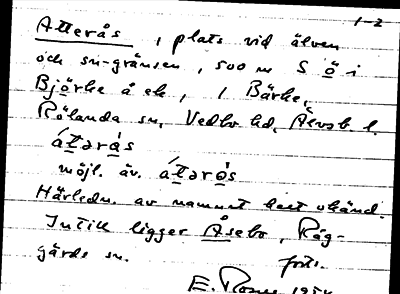 1-2
Atterås, plats vid älven
och sn-gränsen, 500 m S ö i
Björke å ek, i Bärke,
Rölanda sn, Vedbo hd, Älvsb. l.
átərà̱s
möjl. äv. átərò̱s
Härledn. av namnet hert okänd.
Intill ligger Åsebo, Rög-
gärds sn.
forts.
E. Rosen 1954